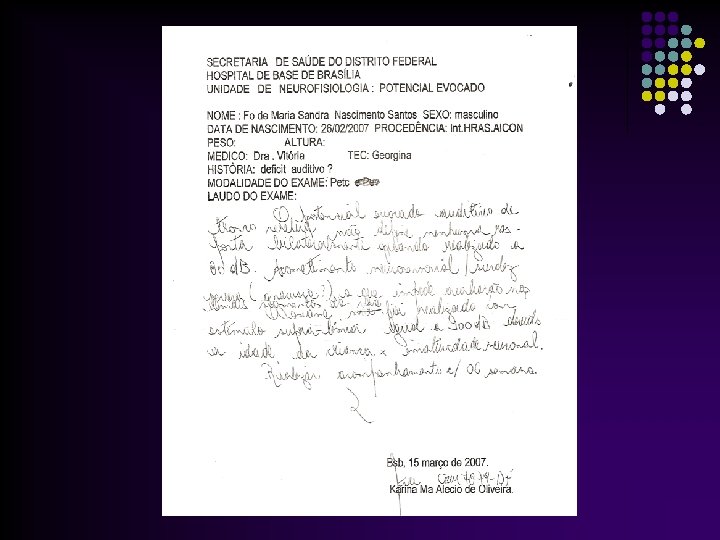 SECRETARIA DE SAÚDE DO DISTRITO FEDERAL
HOSPITAL DE BASE DE BRASÍLIA
UNIDADE DE NEUROFISIOLOGIA : POTENCIAL EVOCADO
NOME : Fo de Maria Sandra Nascimento Santos SEXO: masculino
DATA DE NASCIMENTO: 26/02/2007 PROCEDÊNCIA: Int.HRAS.AICON
PESO: ALTURA:
MEDICO: Dra . Vitória TEC: Georgina
HISTÓRIA: deficit auditivo ?
MODALIDADE DO EXAME: Petc
LAUDO DO EXAME:
O potencial evocado auditivo de
tronco não define nenhuma res-
posta bilateralmente quando realizado a
80 dB. neurosensorial / surdez
severa ( ?) o que impede avaliação nos
demais segmentos
foi realizado com
estímulo igual a 300 dB devido
a idade da criança x imaturidade neuronal.
acompanhamento c/ 06 semana.
Bsb, 15 março de 2007.
Karina Ma Alecio de Oliveira.